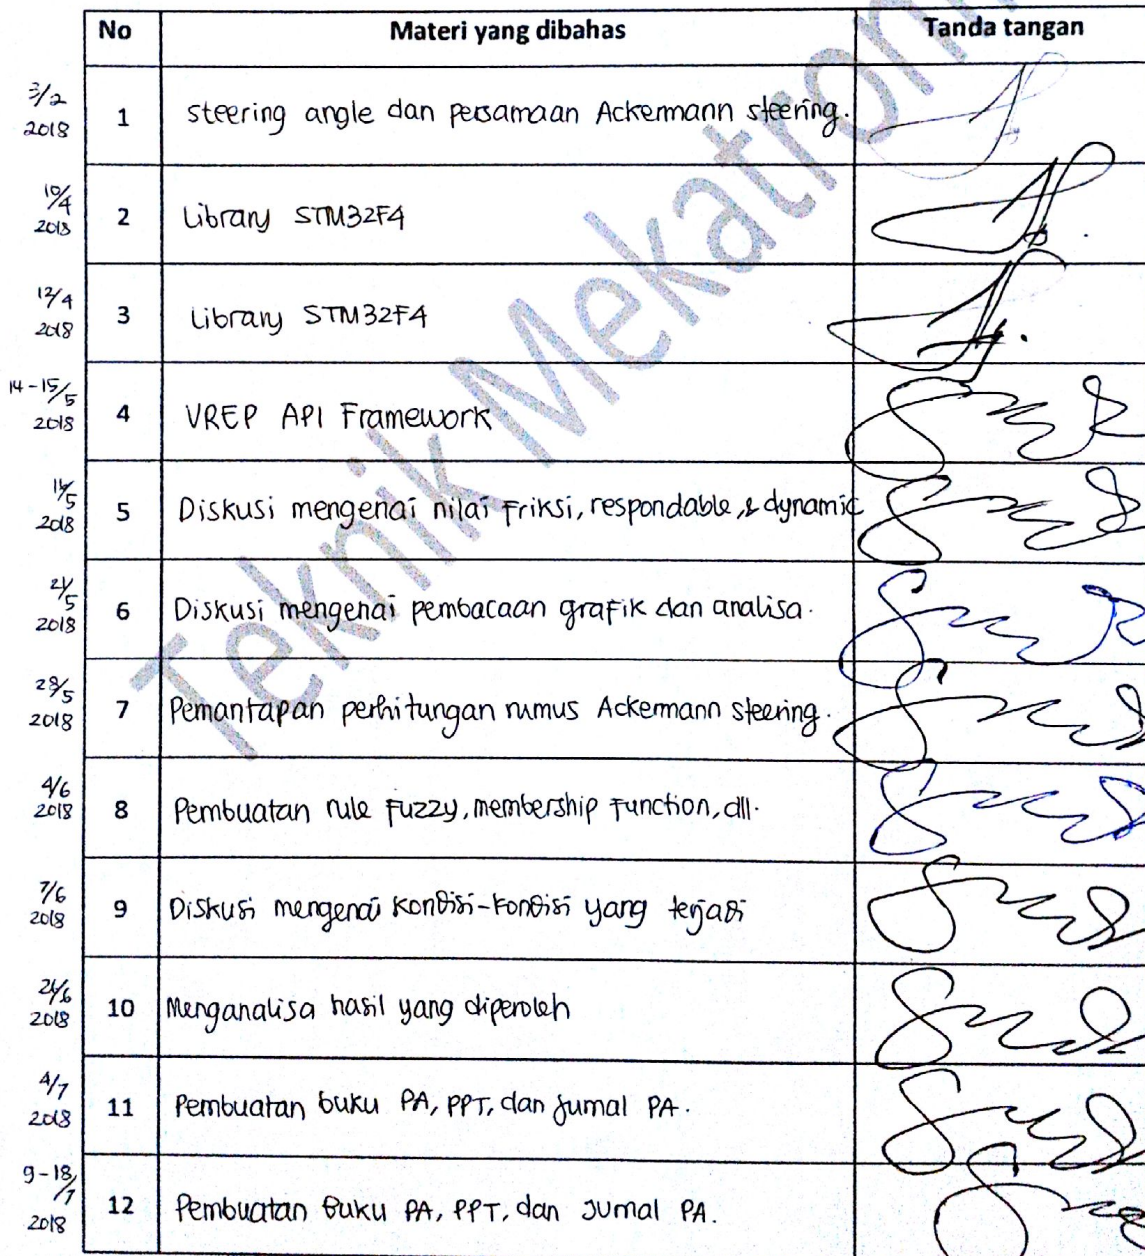 No Materi yang dibahas Tanda tangan
3/2 2018 1 steering angle dan persamaan Ackermann steering.
10/4 2018 2 Library STM32F4
12/4 2018 3 Library STM32F4
14-15/5 2018 4 VREP API Framework
5/2018 5 Diskusi mengenai nilai Friksi, respondable, & dynamic
5/2018 6 Diskusi mengenai pembacaan grafik dan analisa.
5/2018 7 Pemantapan perhitungan rumus Ackermann steering.
4/6 2018 8 Pembuatan rule Fuzzy, membership Function, dll.
7/6 2018 9 Diskusi mengenai kondisi-kondisi yang terjadi
6/2018 10 Menganalisa hasil yang diperoleh
4/7 2018 11 Pembuatan buku PA, PPT, dan jurnal PA.
9-18/7 2018 12 Pembuatan Buku PA, PPT, dan Jurnal PA.
Teknik Mekatron